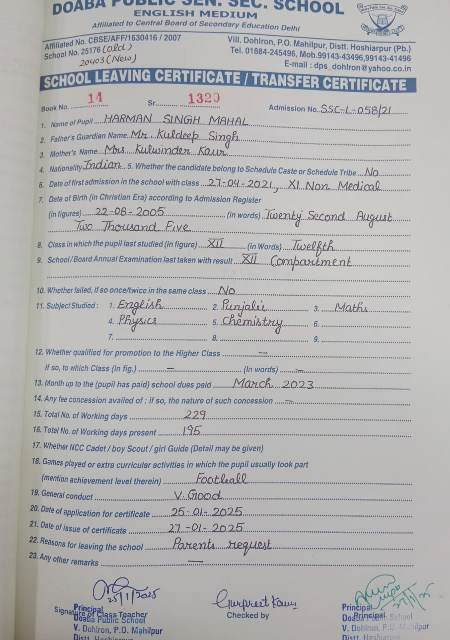 DOABA PUBLIC SEN. SEC. SCHOOL
ENGLISH MEDIUM
Affiliated to Central Board of Secondary Education Delhi
Affiliated No. CBSE/AFF/1630416 / 2007
School No. 25176 (Old)
20403 (New)
Vill. Dohlron, P.O. Mahilpur, Distt. Hoshiarpur (Pb.)
Tel. 01884-245496, Mob.99143-43496,99143-41496
E-mail : dps_dohlron@yahoo.co.in
SCHOOL LEAVING CERTIFICATE / TRANSFER CERTIFICATE
Book No. 14 Sr. 1320 Admission No. SSC-L-058/21
1. Name of Pupil HARMAN SINGH MAHAL
2. Father's Guardian Name Mr. Kuldeep Singh
3. Mother's Name Mrs Kulwinder Kaur
4. Nationality Indian 5. Whether the candidate belong to Schedule Caste or Schedule Tribe No
6. Date of first admission in the school with class 27-04-2021, XI Non Medical
7. Date of Birth (in Christian Era) according to Admission Register
(in figures) 22-08-2005 (in words) Twenty Second August
Two Thousand Five
8. Class in which the pupil last studied (in figure) XII (in Words) Twelfth
9. School/Board Annual Examination last taken with result XII Compartment
10. Whether failed, if so once/twice in the same class No
11. Subject Studied : 1. English 2. Punjabi 3. Maths
4. Physics 5. Chemistry 6.
7. 8. 9.
12. Whether qualified for promotion to the Higher Class —
if so, to which Class (in fig.) — (in words) —
13. Month up to the (pupil has paid) school dues paid March 2023
14. Any fee concession availed of : if so, the nature of such concession —
15. Total No. of Working days 229
16. Total No. of Working days present 195
17. Whether NCC Cadet / boy Scout / girl Guide (Detail may be given)
18. Games played or extra curricular activities in which the pupil usually took part
(mention achievement level therein) Football
19. General conduct V. Good
20. Date of application for certificate 25-01-2025
21. Date of issue of certificate 27-01-2025
22. Reasons for leaving the school Parents request
23. Any other remarks —
25/1/2025
Gurpreet Kaur
Principal
Signature of Class Teacher
Doaba Public School
V. Dohlron, P.O. Mahilpur
Distt. Hoshiarpur
Checked by
Principal
Principal
Doaba Public School
V. Dohlron, P.O. Mahilpur
Distt. Hoshiarpur